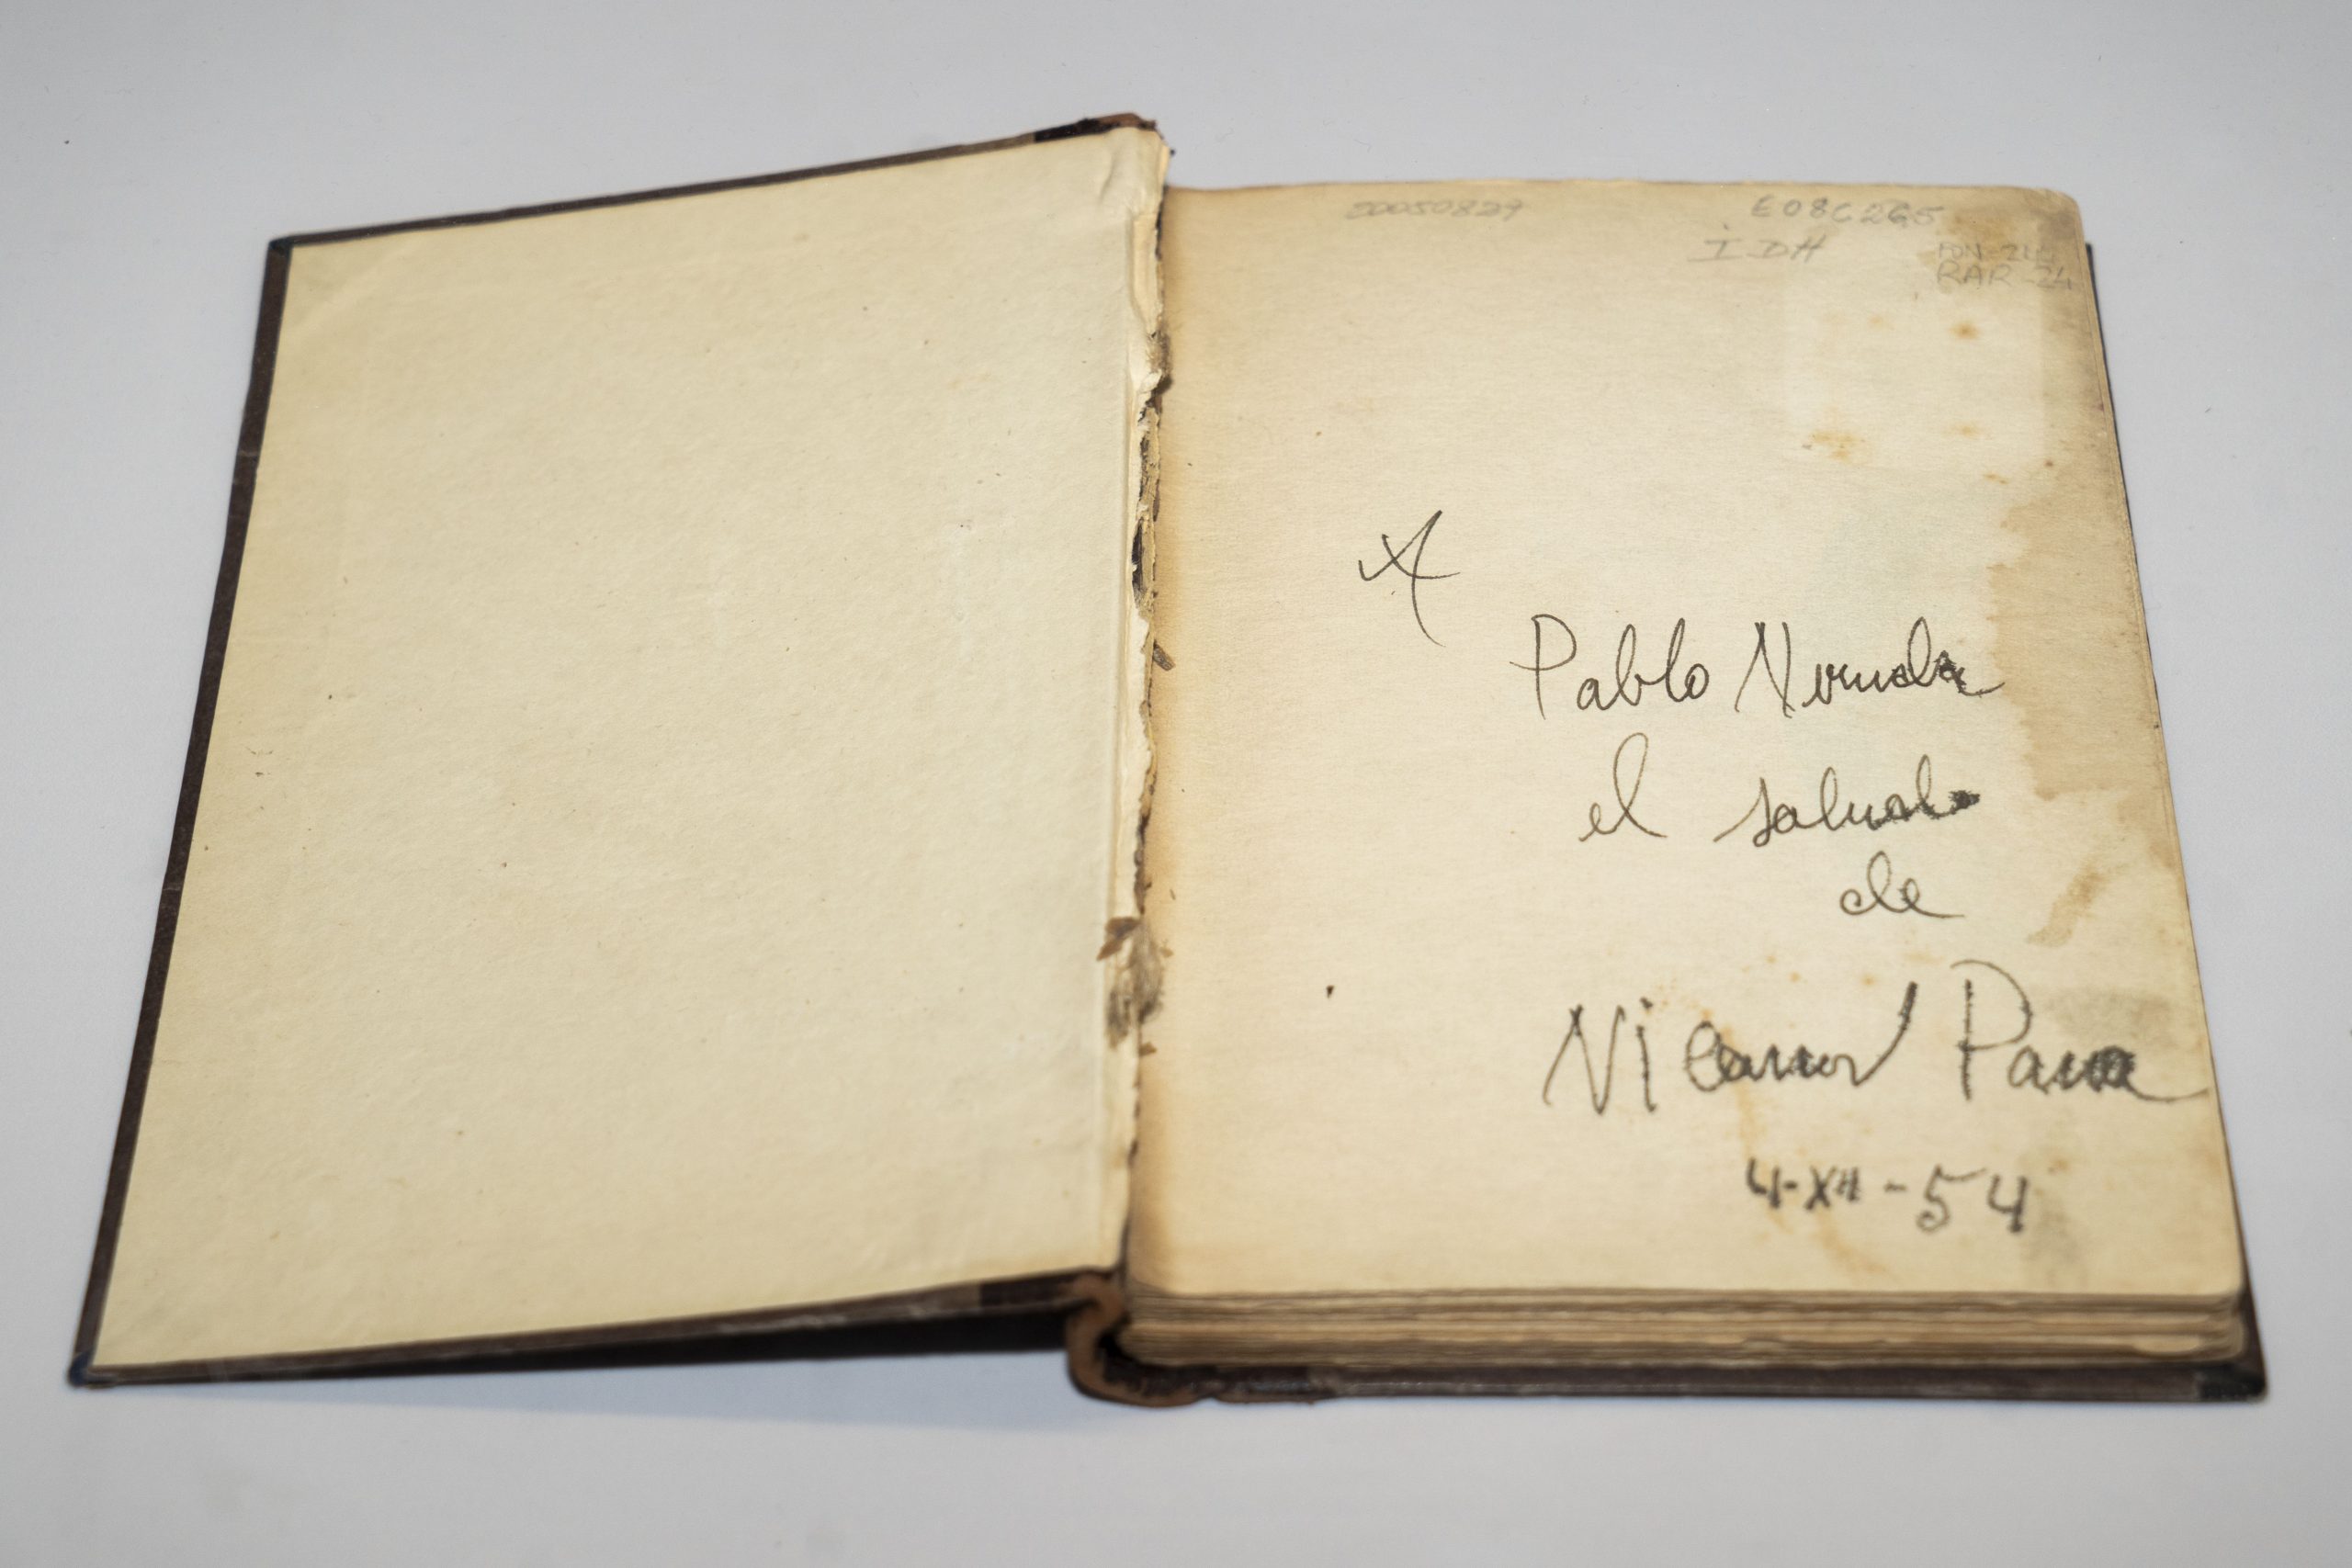 E08C265
IDH
RAR-24
A
Pablo Neruda
el saludo
de
Nicanor Parra
4-XII-54